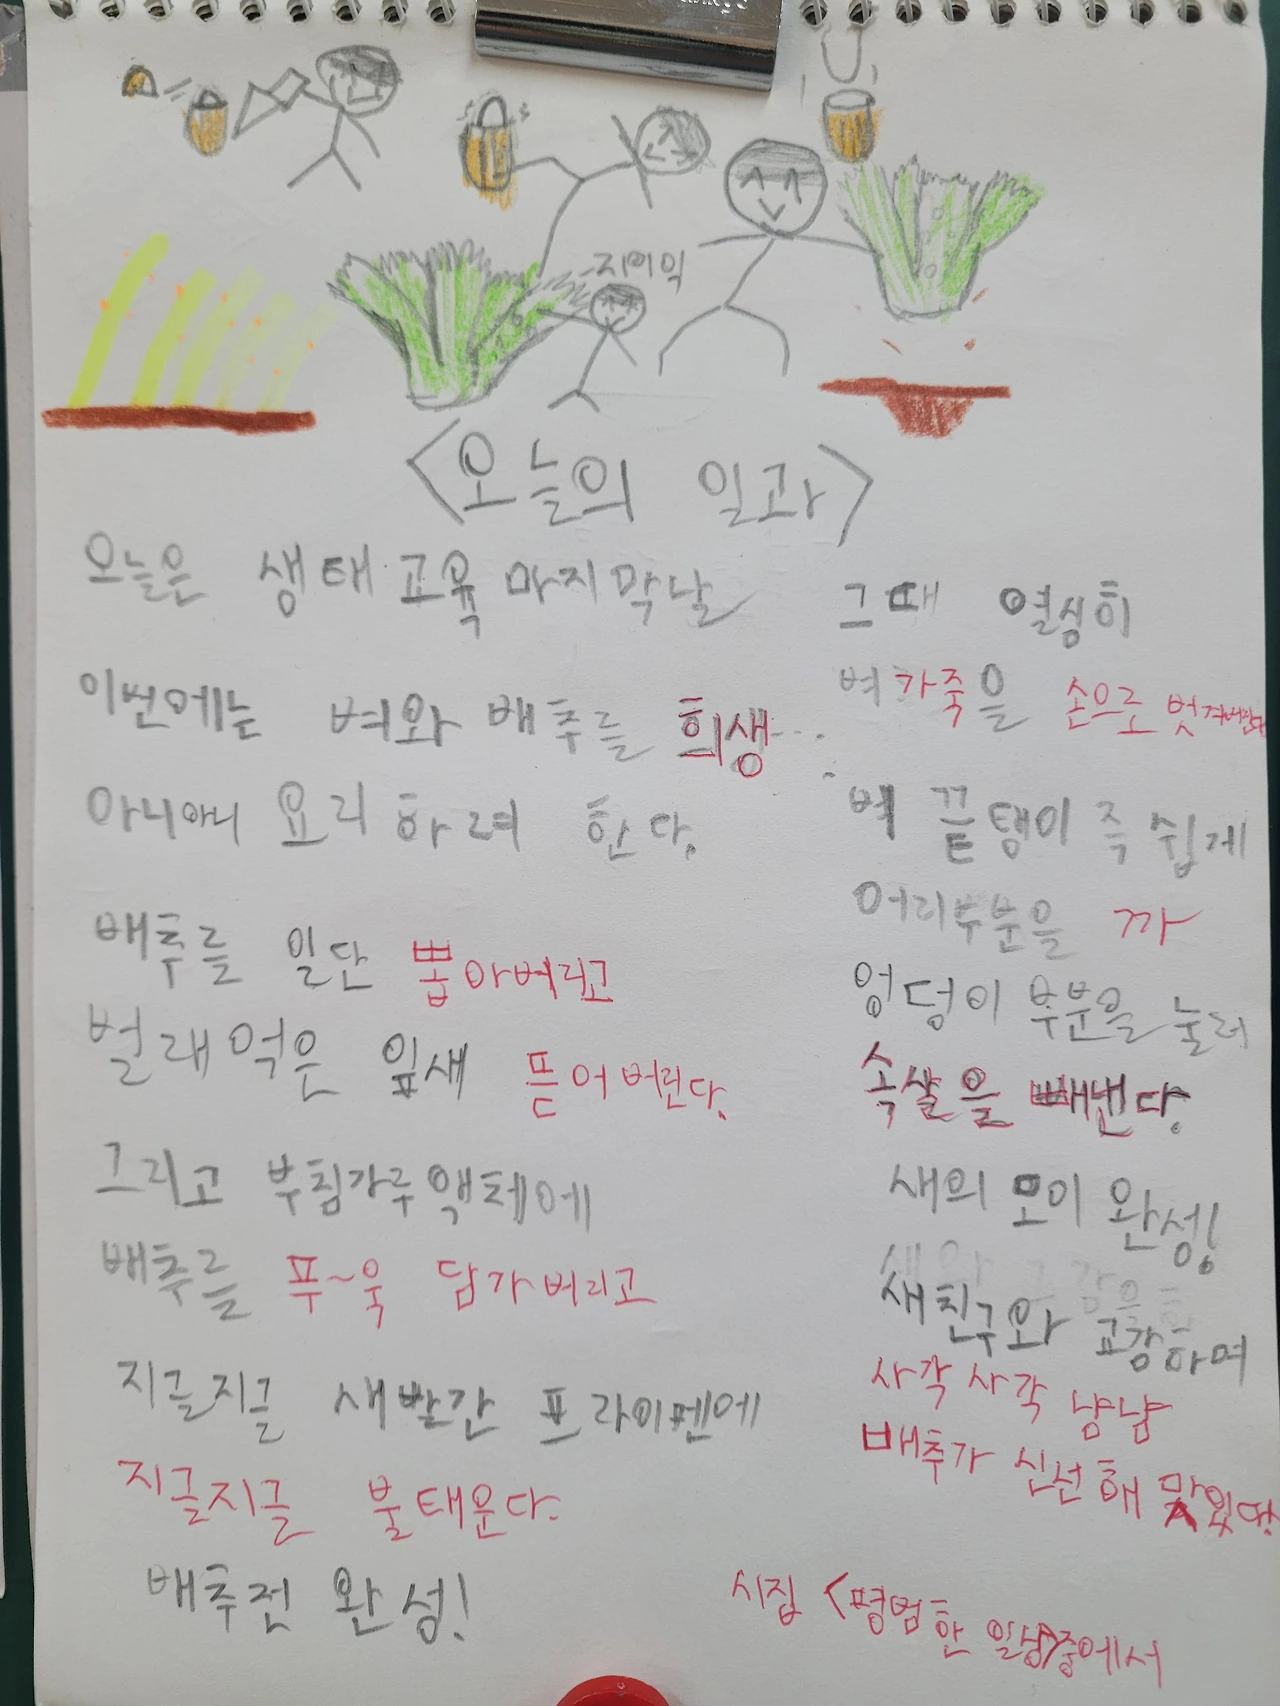 지이익
<오늘의 일과>
오늘은 생태교육 마지막날
이번에는 벼와 배추를 희생...
아니아니 요리 하려 한다.
배추를 일단 뽑아버리고
벌래먹은 잎새 뜯어버린다.
그리고 부침가루액체에
배추를 푸~욱 담가버리고
지글지글 새빨간 프라이펜에
지글지글 불태운다.
배추전 완성!
그때 열심히
벼가죽을 손으로 벗겨버린다
벼 끝탱이 즉 쉽게
머리부분을 까
엉덩이 부분을 눌러
속살을 빼낸다.
새의 모이 완성!
새친구와 교감하며
사각사각 냠냠
배추가 신선해 맛있다!
시집 <평범한 일상>중에서